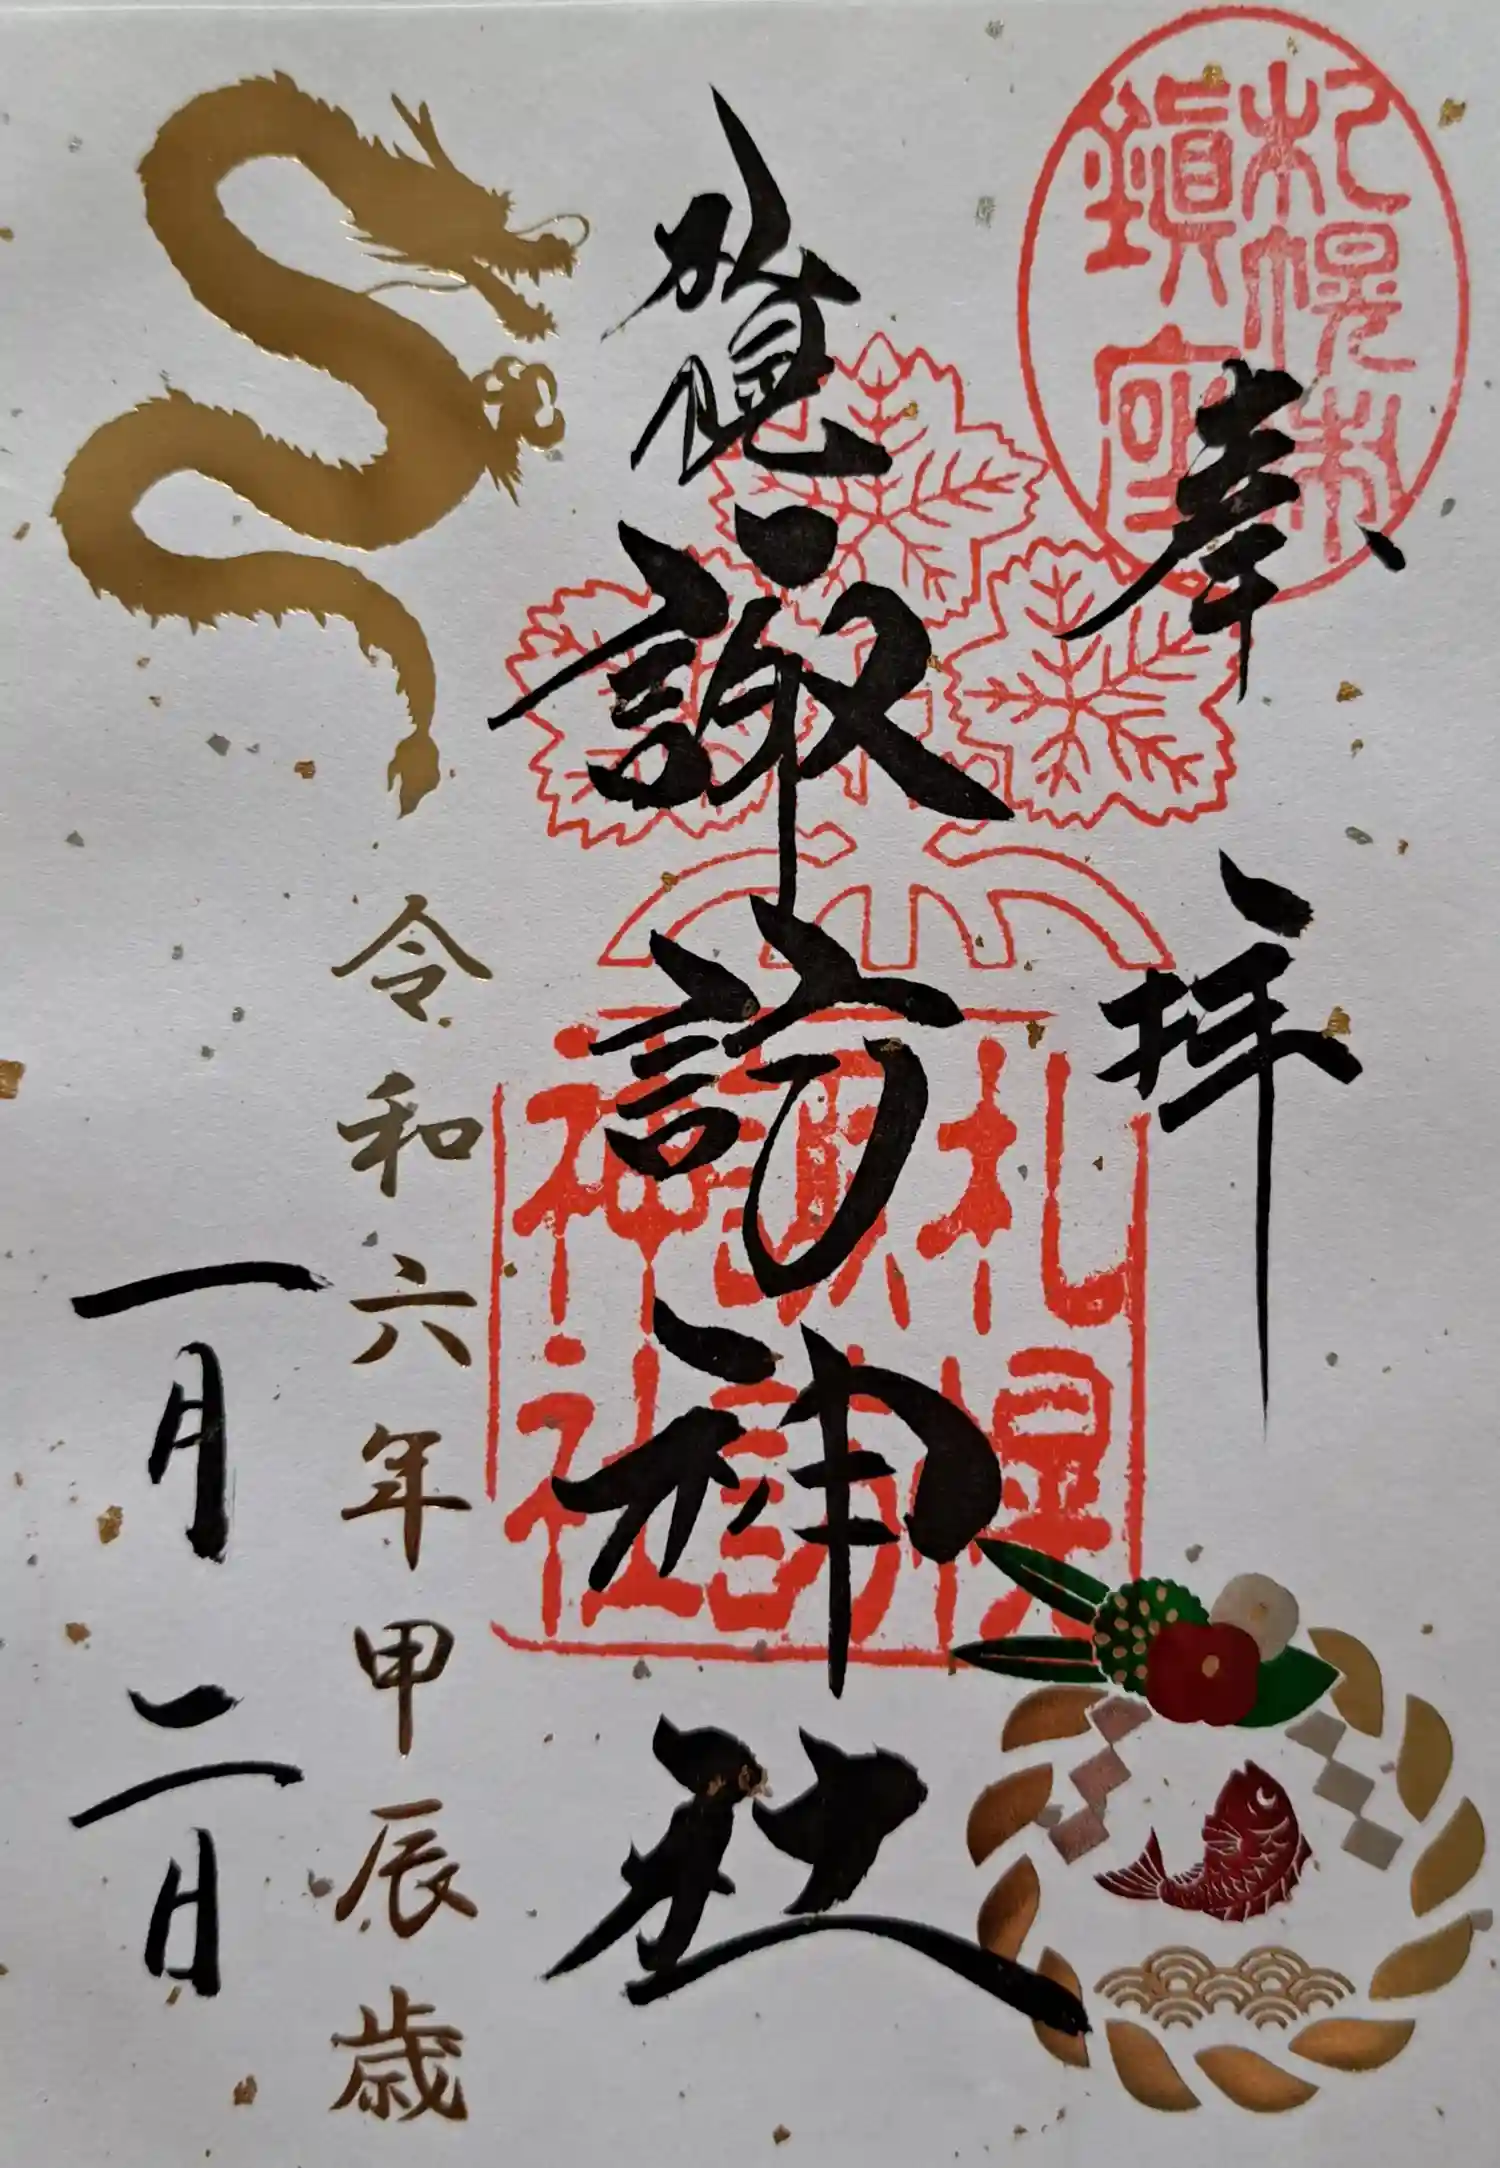 札幌市
鎮座
奉拝
札幌諏訪神社
札幌
諏訪
神社
令和六年甲辰歳
一月二日